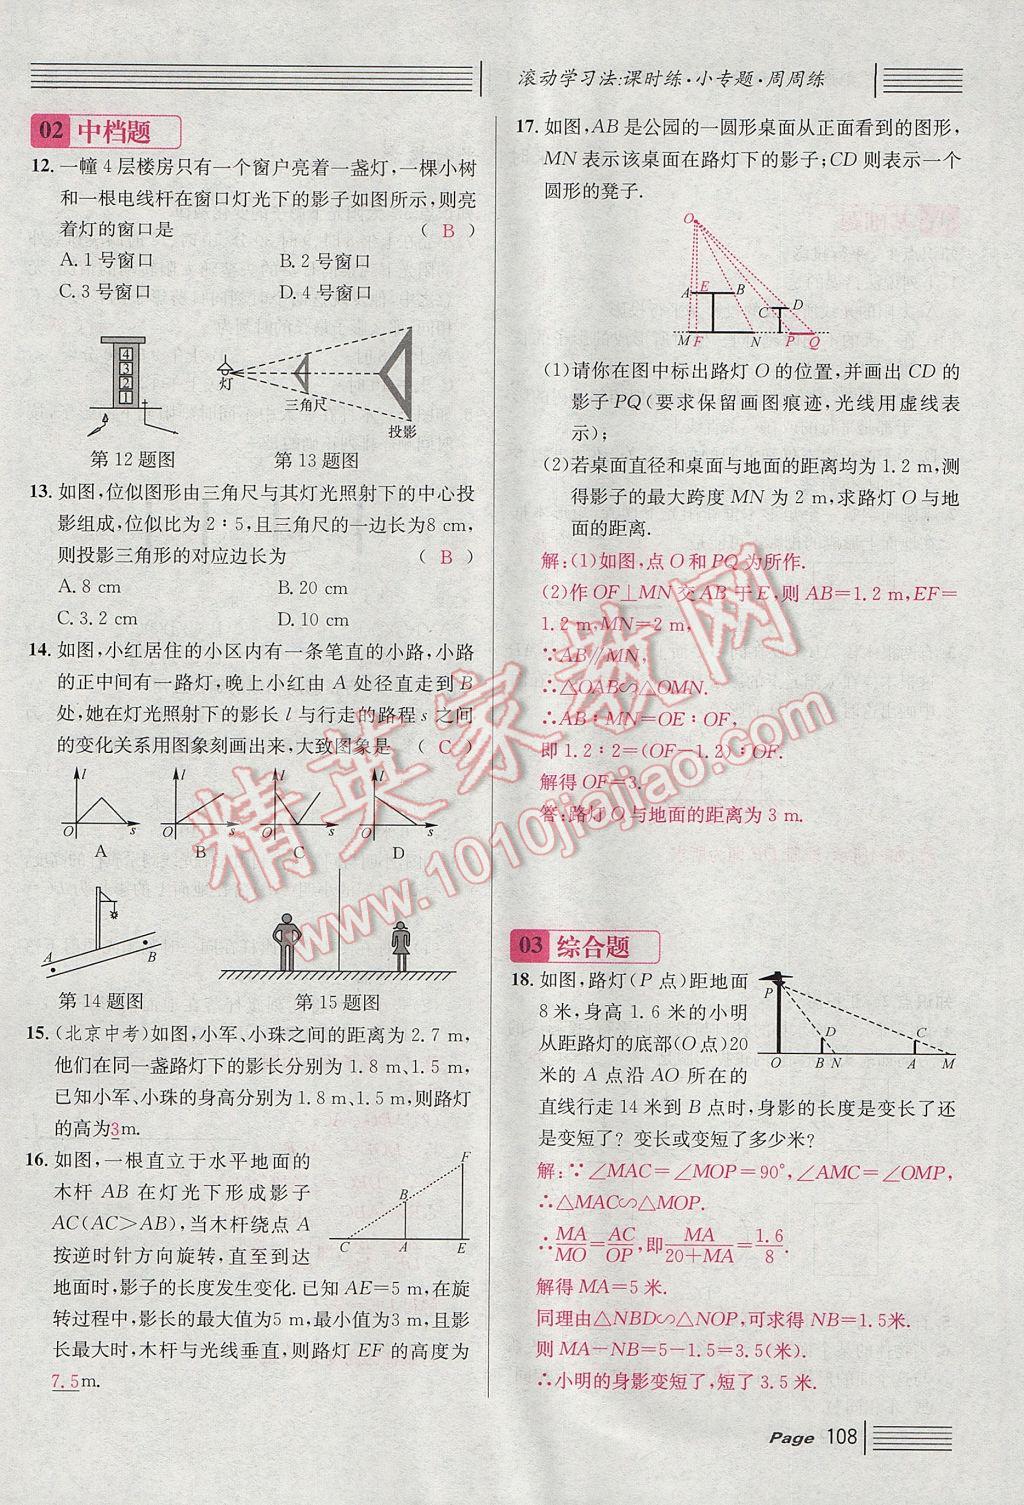 滚动学习法:课时练·小专题·周周练
02 中档题
12. 一幢 4 层楼房只有一个窗户亮着一盏灯,一棵小树
和一根电线杆在窗口灯光下的影子如图所示,则亮
着灯的窗口是 ( B )
A. 1 号窗口 B. 2 号窗口
C. 3 号窗口 D. 4 号窗口
4
3
2
1
灯
三角尺
投影
第 12 题图 第 13 题图
13. 如图,位似图形由三角尺与其灯光照射下的中心投
影组成,位似比为 2∶5,且三角尺的一边长为8 cm,
则投影三角形的对应边长为 ( B )
A. 8 cm B. 20 cm
C. 3.2 cm D. 10 cm
14. 如图,小红居住的小区内有一条笔直的小路,小路
的正中间有一路灯,晚上小红由 A 处径直走到 B
处,她在灯光照射下的影长 l 与行走的路程 s 之间
的变化关系用图象刻画出来,大致图象是 ( C )
l l l l
O s O s O s O s
A B C D
A B
第 14 题图 第 15 题图
15. (北京中考)如图,小军、小珠之间的距离为 2.7 m,
他们在同一盏路灯下的影长分别为 1.8 m、1.5 m,
已知小军、小珠的身高分别为 1.8 m、1.5 m,则路灯
的高为3m.
16. 如图,一根直立于水平地面的
木杆 AB 在灯光下形成影子
AC(AC>AB),当木杆绕点 A
按逆时针方向旋转,直至到达
地面时,影子的长度发生变化. 已知 AE=5 m,在旋
转过程中,影长的最大值为5 m,最小值为3 m,且影
长最大时,木杆与光线垂直,则路灯 EF 的高度为
7.5m.
F
B
C A E
17. 如图,AB 是公园的一圆形桌面从正面看到的图形,
MN 表示该桌面在路灯下的影子;CD 则表示一个
圆形的凳子.
O
A E B
C D
M F N P Q
(1)请你在图中标出路灯 O 的位置,并画出 CD 的
影子 PQ(要求保留画图痕迹,光线用虚线表
示);
(2)若桌面直径和桌面与地面的距离均为 1.2 m,测
得影子的最大跨度 MN 为 2 m,求路灯 O 与地
面的距离.
解:(1)如图,点 O 和 PQ 为所作.
(2)作 OF⊥MN 交 AB 于 E,则 AB=1.2 m,EF=
1.2 m,MN=2 m,
∵AB∥MN,
∴△OAB∽△OMN.
∴AB∶MN=OE∶OF,
即 1.2∶2=(OF-1.2)∶OF.
解得 OF=3.
答:路灯 O 与地面的距离为 3 m.
03 综合题
18. 如图,路灯(P 点)距地面
8 米,身高 1.6 米的小明
从距路灯的底部(O 点)20
米的 A 点沿 AO 所在的
直线行走 14 米到 B 点时,身影的长度是变长了还
是变短了? 变长或变短了多少米?
P
D C
O B N A M
解:∵∠MAC=∠MOP=90°,∠AMC=∠OMP,
∴△MAC∽△MOP.
∴MA/MO=AC/OP,即MA/(20+MA)=1.6/8.
解得 MA=5 米.
同理由△NBD∽△NOP,可求得 NB=1.5米.
则 MA-NB=5-1.5=3.5(米).
∴小明的身影变短了,短了 3.5 米.
Page 108
精英家教网
www.1010jiajiao.com